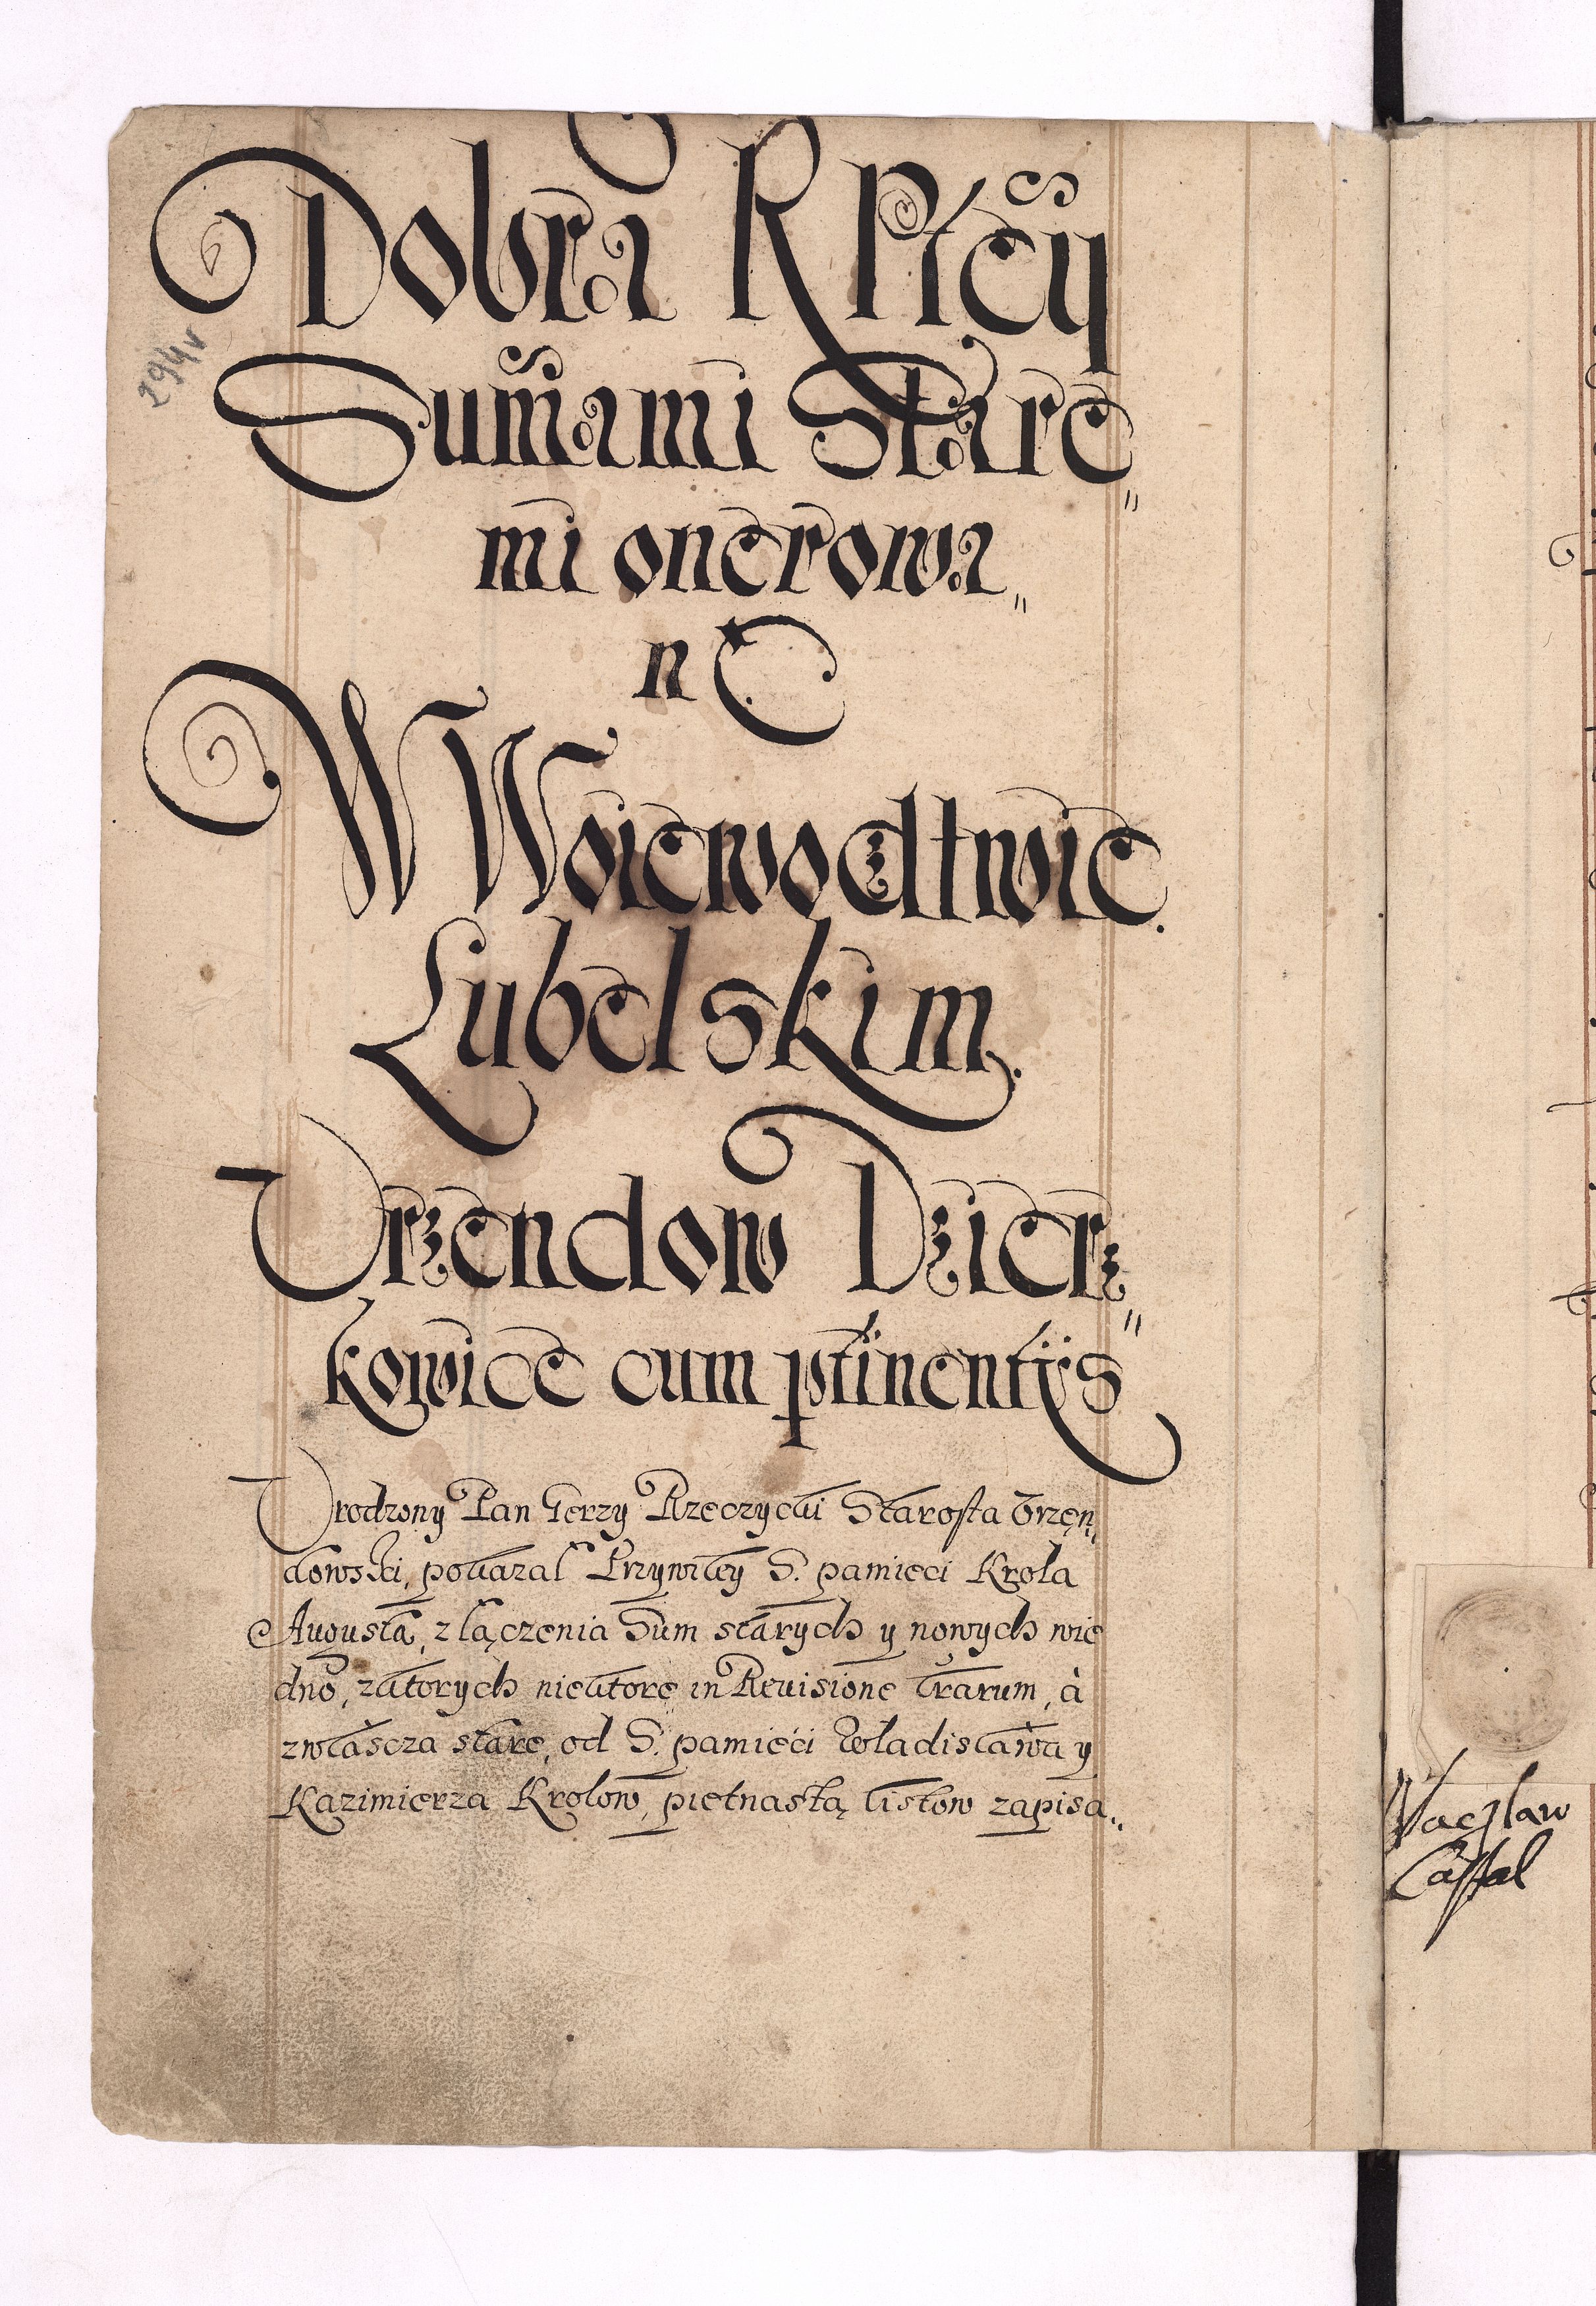 Dobra RPtcÿ
Sum̃ami Stare„
mi onerowa„
ne
W Woiewodtwie.
Lubelskim.
Vrzendow Dzierz„
kowice cum ptinentÿs
Vrodzony Pan Ierzy Rzeczycki Starosta Vrzęn„
dowski, pokazal Przywiley S. pamieci Krola
Augusta, z łączenia Sum starych y nowych wie
dno, z ktorych niektore in Reuisione l̃rarum, à
zwłascza stare, od S. pamieci Wladisława y
Kazimierza Krolow, pietnastą listow zapisa„
294v
Waczlaw
Castal